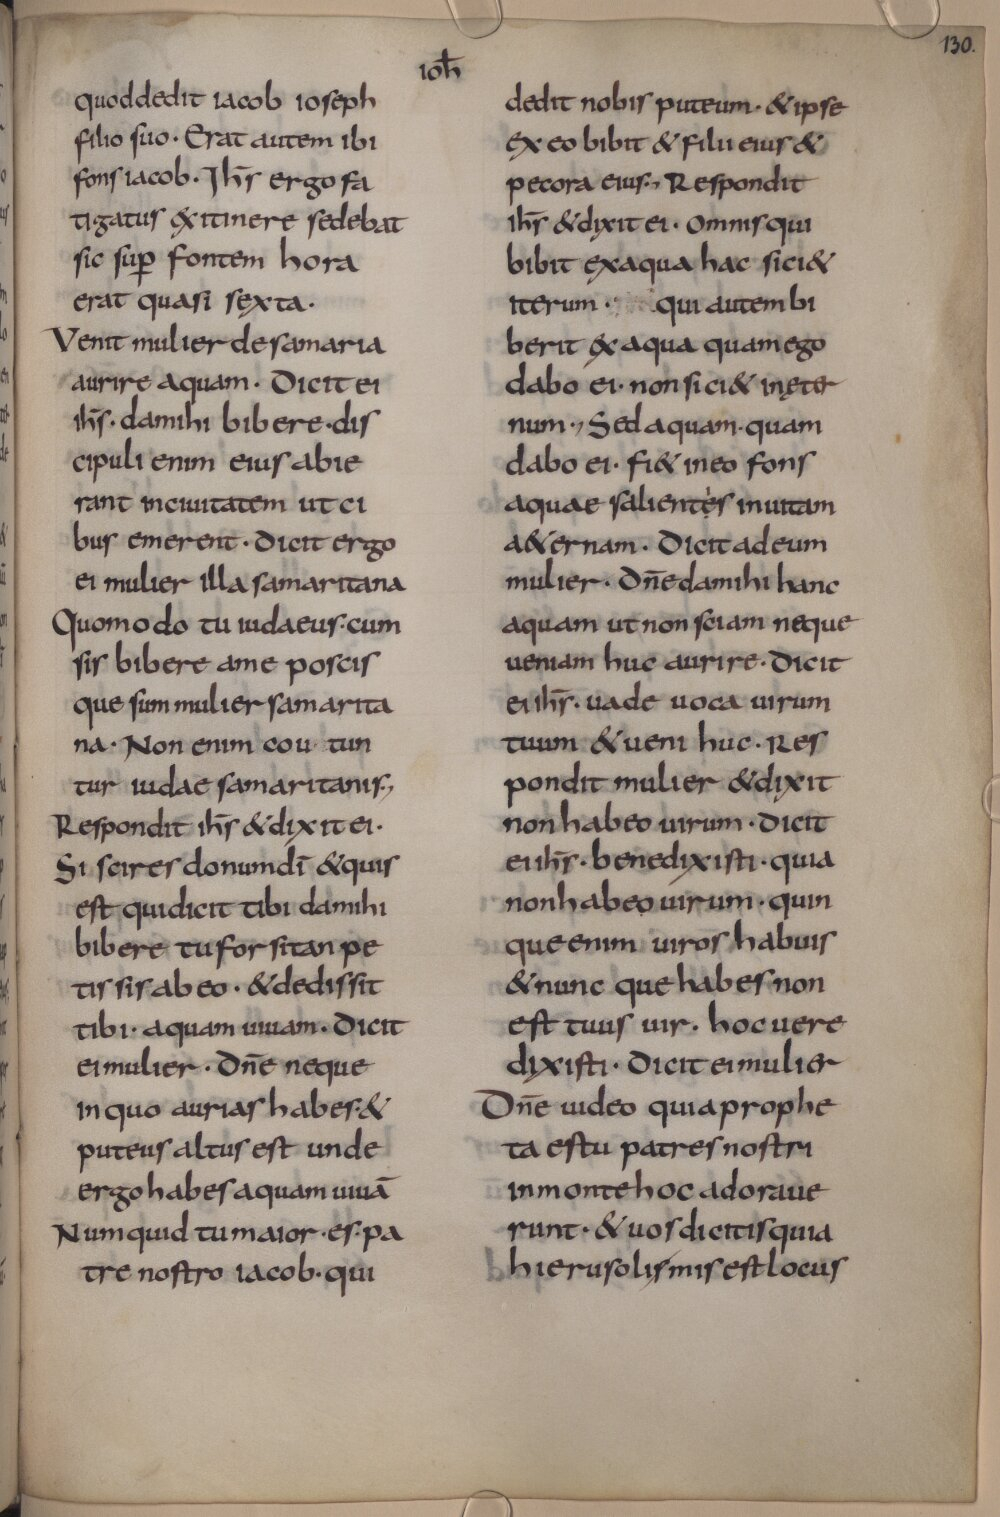 130.
ioħ
quod dedit iacob ioseph
filio suo · Erat autem ibi
fons iacob · Ih̅s ergo fa
tigatus ex itinere sedebat
sic sup̲ fontem hora
erat quasi sexta ·
Venit mulier de samaria
aurire aquam · Dicit ei
ih̅s · da mihi bibere · dis
cipuli enim eius abie
rant in ciuitatem ut ci
bus emerent · Dicit ergo
ei mulier illa samaritana
Quomodo tu iudaeus · cum
sis bibere a me poscis
que sum mulier samarita
na · Non enim cou tun
tur iudae samaritanis ·,
Respondit ih̅s & dixit ei ·
Si scires donum di̅ & quis
est qui dicit tibi da mihi
bibere tu forsitan pe
tissis ab eo · & dedissit
tibi · aquam uiuam · Dicit
ei mulier · Dn̅e neque
in quo aurias habes · &
puteus altus est unde
ergo habes aquam uiua̅
Numquid tu maior · es · pa
tre nostro iacob · qui
dedit nobis puteum · & ipse
ex eo bibit & filii eius &
pecora eius ·, Respondit
ih̅s & dixit ei · omnis qui
bibit ex aqua hac sici&
iterum · qui autem bi
berit ex aqua quam ego
dabo ei · non sici& in ęter
num ·, Sed aquam · quam
dabo ei · fi& in eo fons
aquae salientes in uitam
a&ernam · Dicit ad eum
mulier · Dn̅e da mihi hanc
aquam ut non sciam neque
ueniam huc aurire · Dicit
ei ih̅s · uade uoca uirum
tuum & ueni huc · Res
pondit mulier & dixit
non habeo uirum · Dicit
ei ih̅s · bene dixisti · quia
non habeo uirum · quin
que enim uiros habuis
& nunc que habes non
est tuus uir · hoc uere
dixisti · Dicit ei mulier
Dn̅e uideo quia prophe
ta es tu patres nostri
in monte hoc adoraue
runt · & uos dicitis quia
hierusolismis est locus